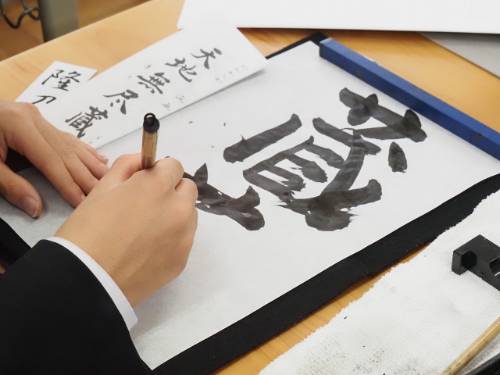 蔵
天地無尽蔵
隆